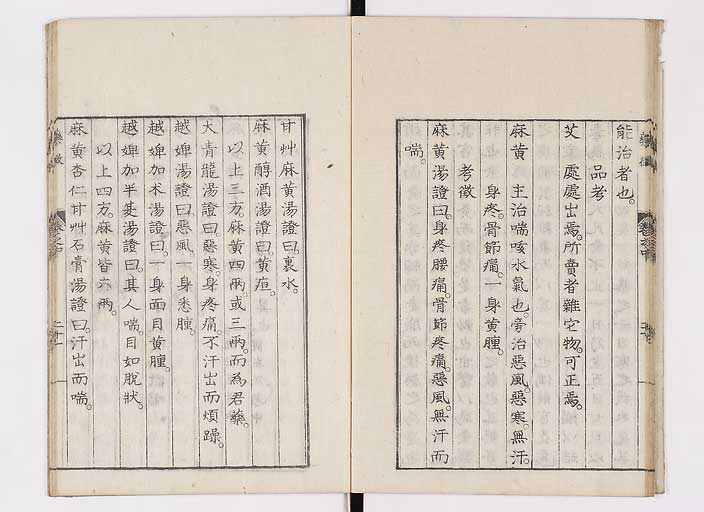 能治者也。
品考
艾 處處出焉。所賣者雜它物。可正焉。
麻黃 主治喘咳水氣也。旁治惡風。惡寒。無汗。
身疼。骨節痛。一身黃腫。
考徵
麻黃湯證曰。身疼腰痛。骨節疼痛。惡風。無汗而
喘。
甘艸麻黃湯證曰。裏水。
麻黃醇酒湯證曰。黃疸。
以上三方。麻黃四兩。或三兩。而為君藥。
大青龍湯證曰。惡寒。身疼痛。不汗出而煩躁。
越婢湯證曰。惡風。一身悉腫。
越婢加朮湯證曰。一身面目黃腫。
越婢加半夏湯證曰。其人喘。目如脫狀。
以上四方。麻黃皆六兩。
麻黃杏仁甘艸石膏湯證曰。汗出而喘。
藥徵
卷之中
二十一